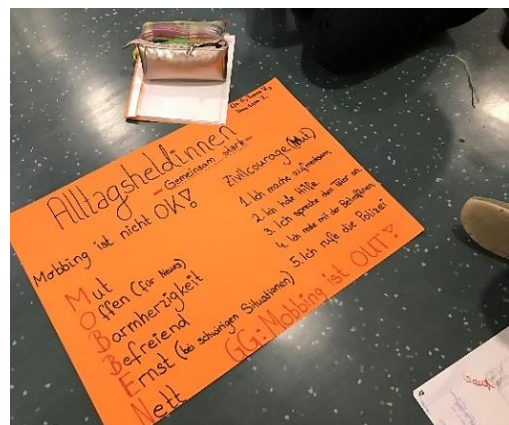 Alltagsheldinnen
- Gemeinsam stark -
Mobbing ist nicht OK!
Mut
Offen (für Neues)
Barmherzigkeit
Befreiend
Ernst (bei schwirigen Situationen)
Nett
Zivilcourage (Mut)
1. Ich mache aufmerksam
2. Ich hole Hilfe
3. Ich spreche den Täter an
4. Ich rede mit der Betroffenen
5. Ich rufe die Polizei
GG: Mobbing ist OUT!